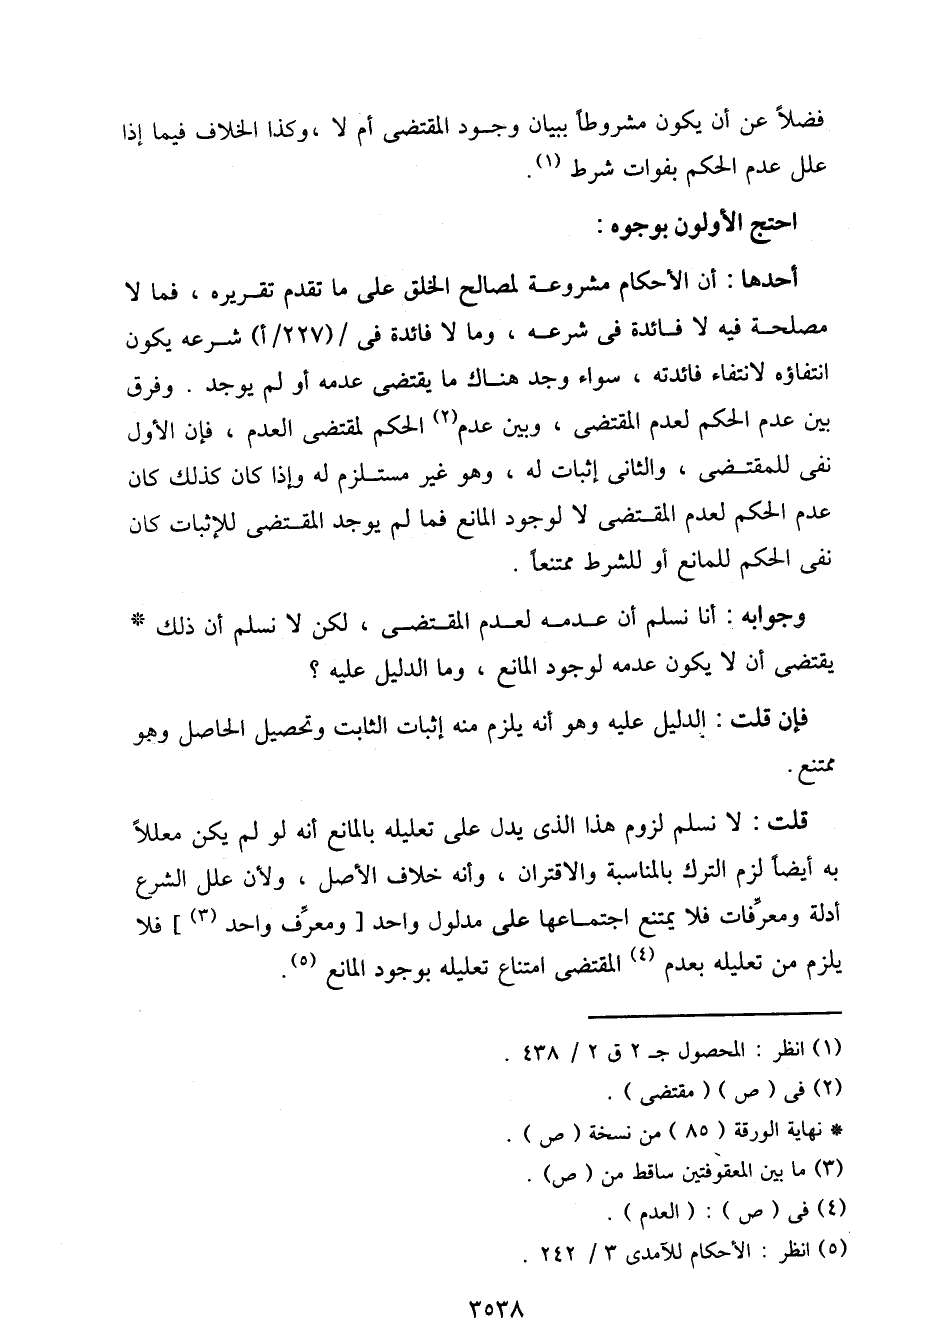 فضلاً عن أن يكون مشروطاً ببيان وجود المقتضى أم لا ، وكذا الخلاف فيما إذا
علل عدم الحكم بفوات شرط (١) .
احتج الأولون بوجوه :
أحدها : أن الأحكام مشروعة لمصالح الخلق على ما تقدم تقريره ، فما لا
مصلحة فيه لا فائدة فى شرعه ، وما لا فائدة فى / (٢٢٧/ أ) شرعه يكون
انتفاؤه لانتفاء فائدته ، سواء وجد هناك ما يقتضى عدمه أو لم يوجد . وفرق
بين عدم الحكم لعدم المقتضى ، وبين عدم(٢) الحكم لمقتضى العدم ، فإن الأول
نفى للمقتضى ، والثانى إثبات له ، وهو غير مستلزم له وإذا كان كذلك كان
عدم الحكم لعدم المقتضى لا لوجود المانع فما لم يوجد المقتضى للإثبات كان
نفى الحكم للمانع أو للشرط ممتنعاً .
وجوابه : أنا نسلم أن عدمه لعدم المقتضى ، لكن لا نسلم أن ذلك *
يقتضى أن لا يكون عدمه لوجود المانع ، وما الدليل عليه ؟
فإن قلت : الدليل عليه وهو أنه يلزم منه إثبات الثابت وتحصيل الحاصل وهو
ممتنع .
قلت : لا نسلم لزوم هذا الذى يدل على تعليله بالمانع أنه لو لم يكن معللاً
به أيضاً لزم الترك بالمناسبة والاقتران ، وأنه خلاف الأصل ، ولأن علل الشرع
أدلة ومعرِّفات فلا يمتنع اجتماعها على مدلول واحد [ ومعرِّف واحد (٣) ] فلا
يلزم من تعليله بعدم (٤) المقتضى امتناع تعليله بوجود المانع (٥) .
(١) انظر : المحصول جـ ٢ ق ٢ / ٤٣٨ .
(٢) فى ( ص ) ( مقتضى ) .
* نهاية الورقة ( ٨٥ ) من نسخة ( ص ) .
(٣) ما بين المعقوفتين ساقط من ( ص) .
(٤) فى ( ص ) : ( العدم ) .
(٥) انظر : الأحكام للآمدى ٣ / ٢٤٢ .
٣٥٣٨